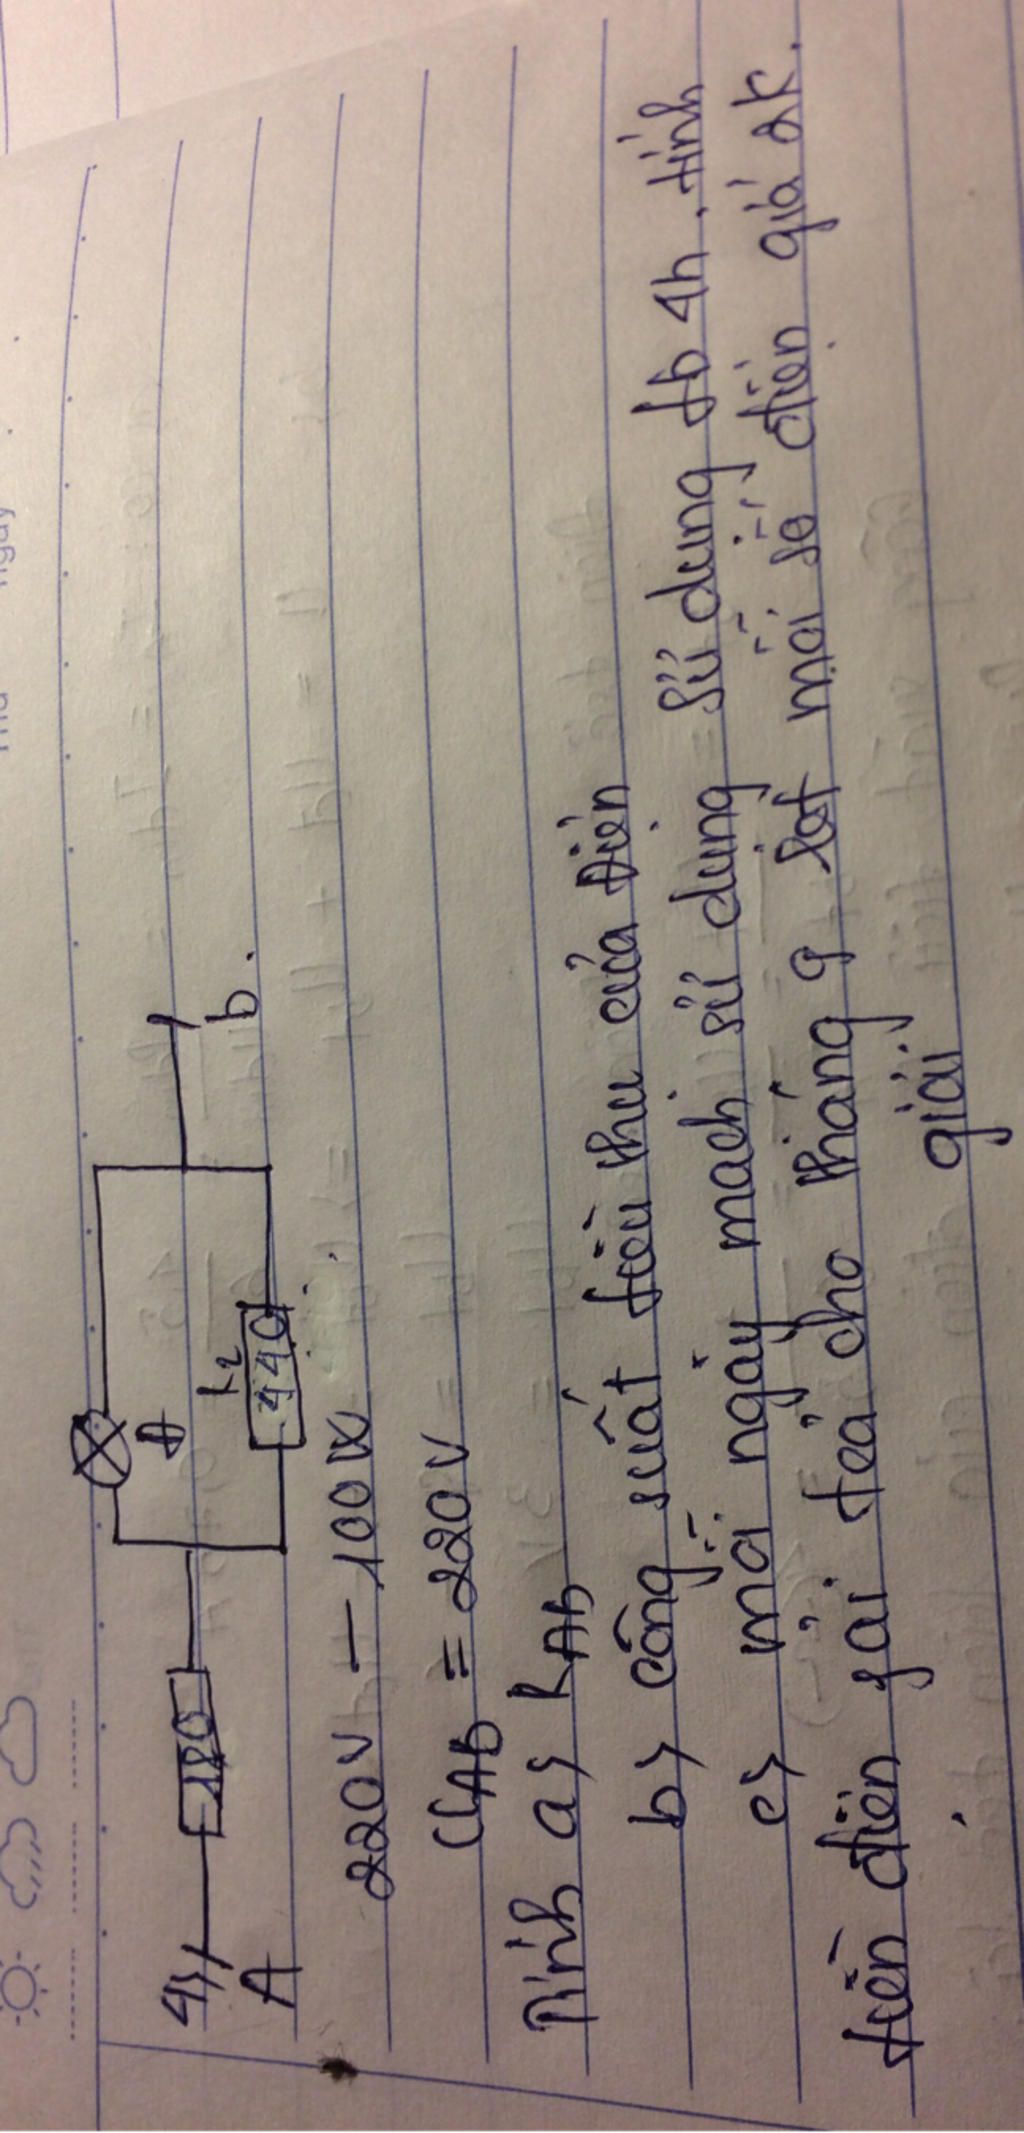 Thứ ngày
4)
A
180
Đ
R2
440
b.
220V - 100W
UAB = 220V
Tính a) RAB
b) công suất tiêu thụ của Đèn
c) mỗi ngày mạch sử dụng sử dụng tb 4h, tính
tiền điện phải trả cho tháng 9 mỗi số điện giá 2k.
giải